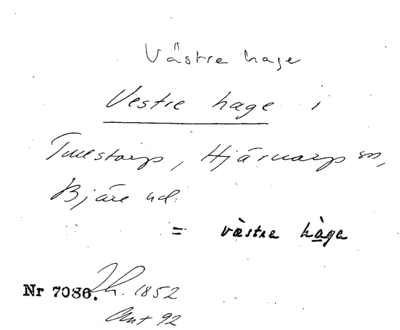 Västre hage
Vestre hage i
Tullstorp, Hjärnarp sn,
Bjäre hd.
= västre hage
Nr 7086. Th. 1852
Ant 92